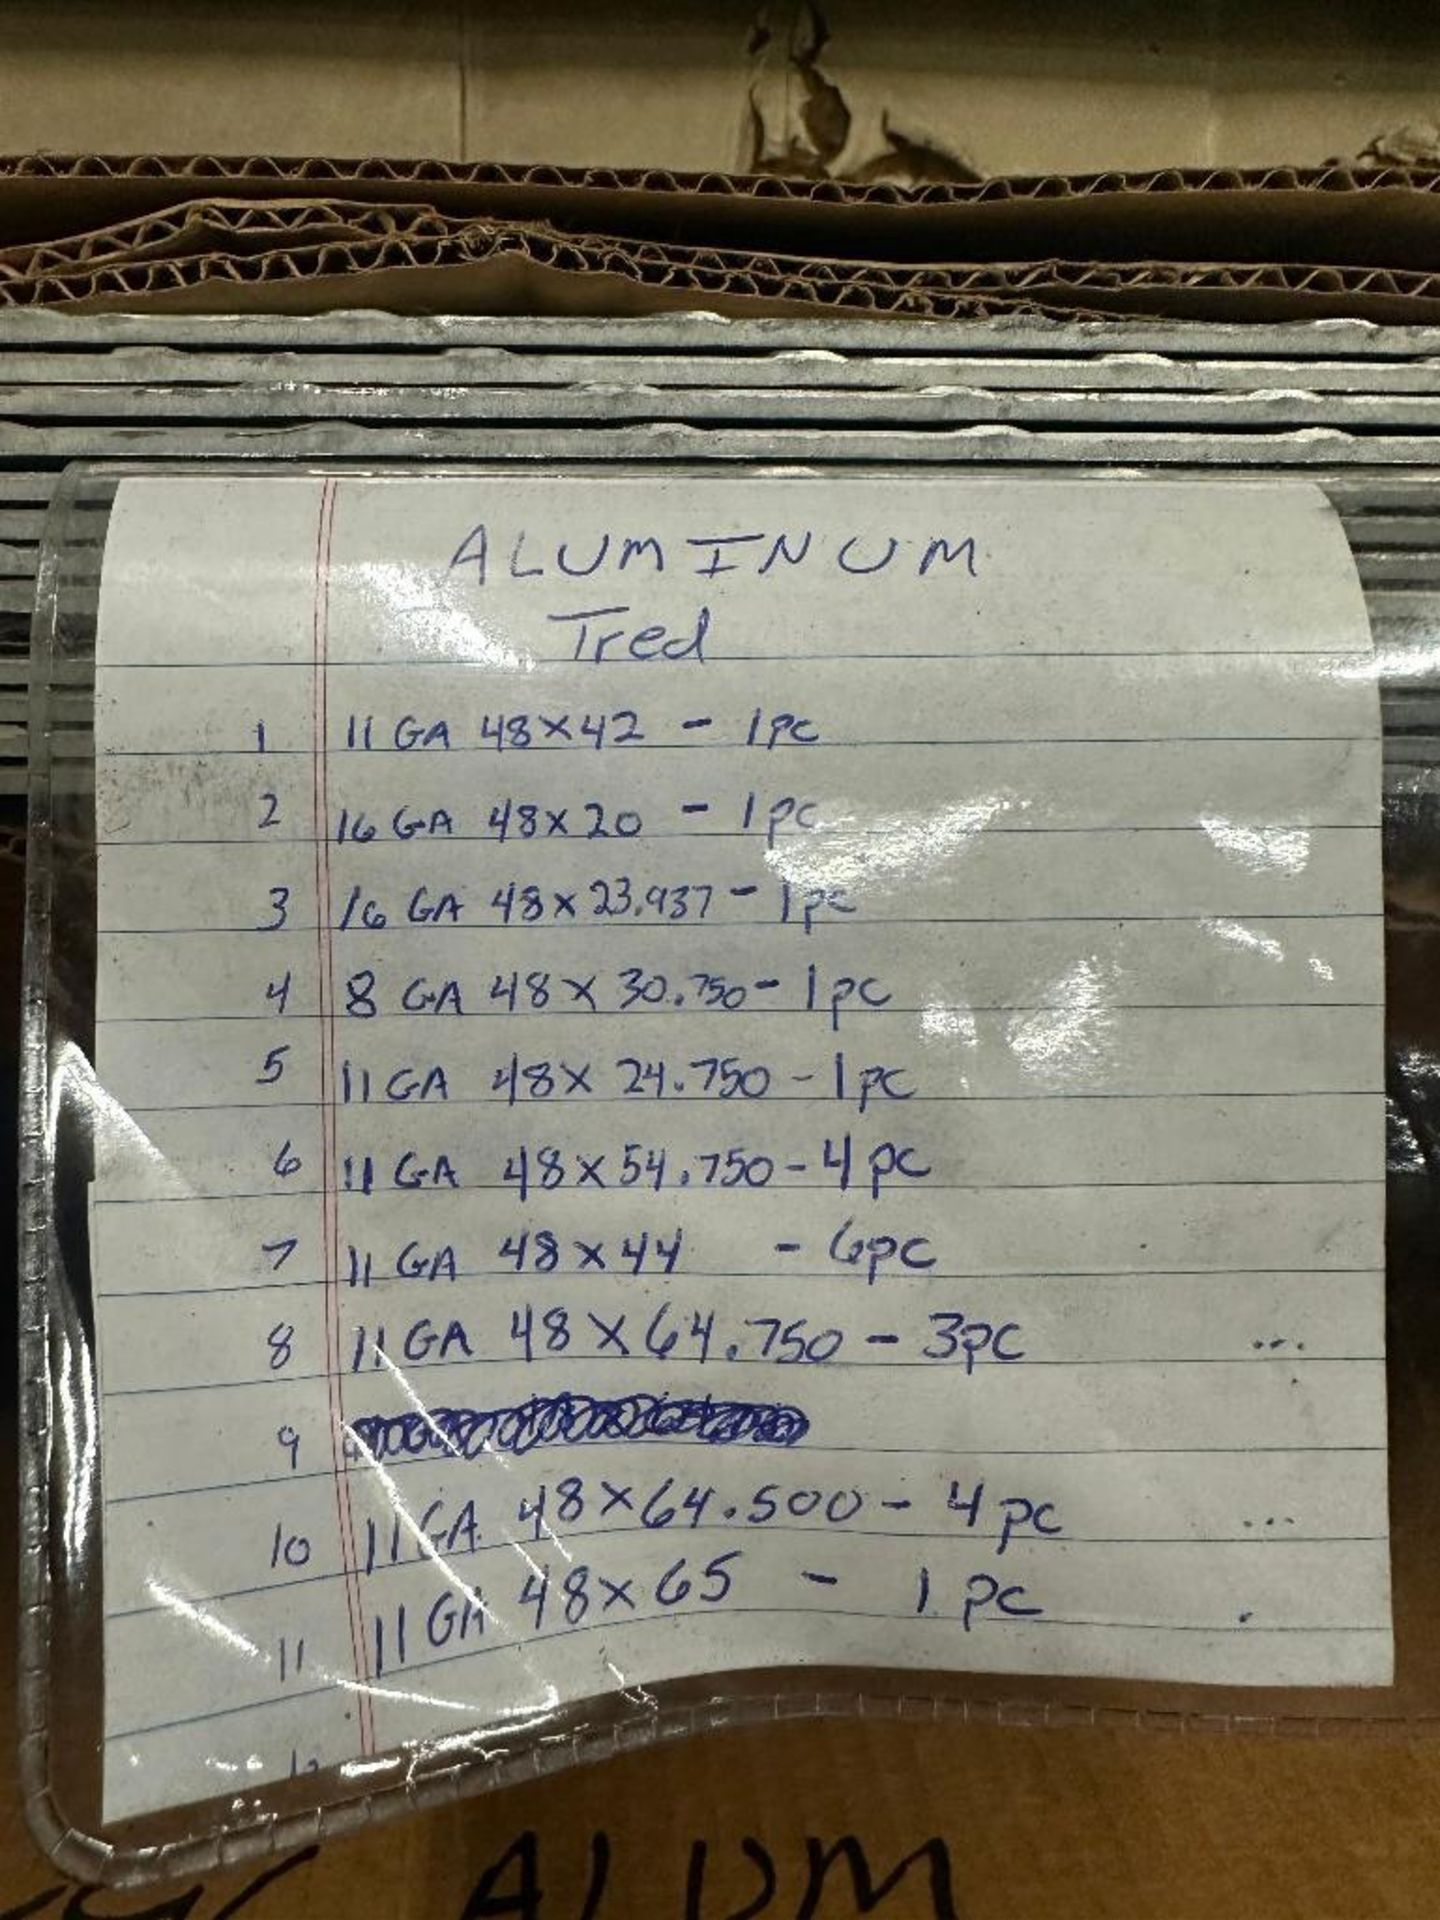 ALUMINUM
Tred
1 11 GA 48x42 - 1pc
2 16 GA 48x20 - 1pc
3 16 GA 48x23.937 - 1pc
4 8 GA 48x30.750 - 1pc
5 11 GA 48x24.750 - 1pc
6 11 GA 48x54.750 - 4pc
7 11 GA 48x44 - 6pc
8 11 GA 48x64.750 - 3pc ...
9
10 11 GA 48x64.500 - 4pc ...
11 11 GA 48x65 - 1pc .
12
ALUM